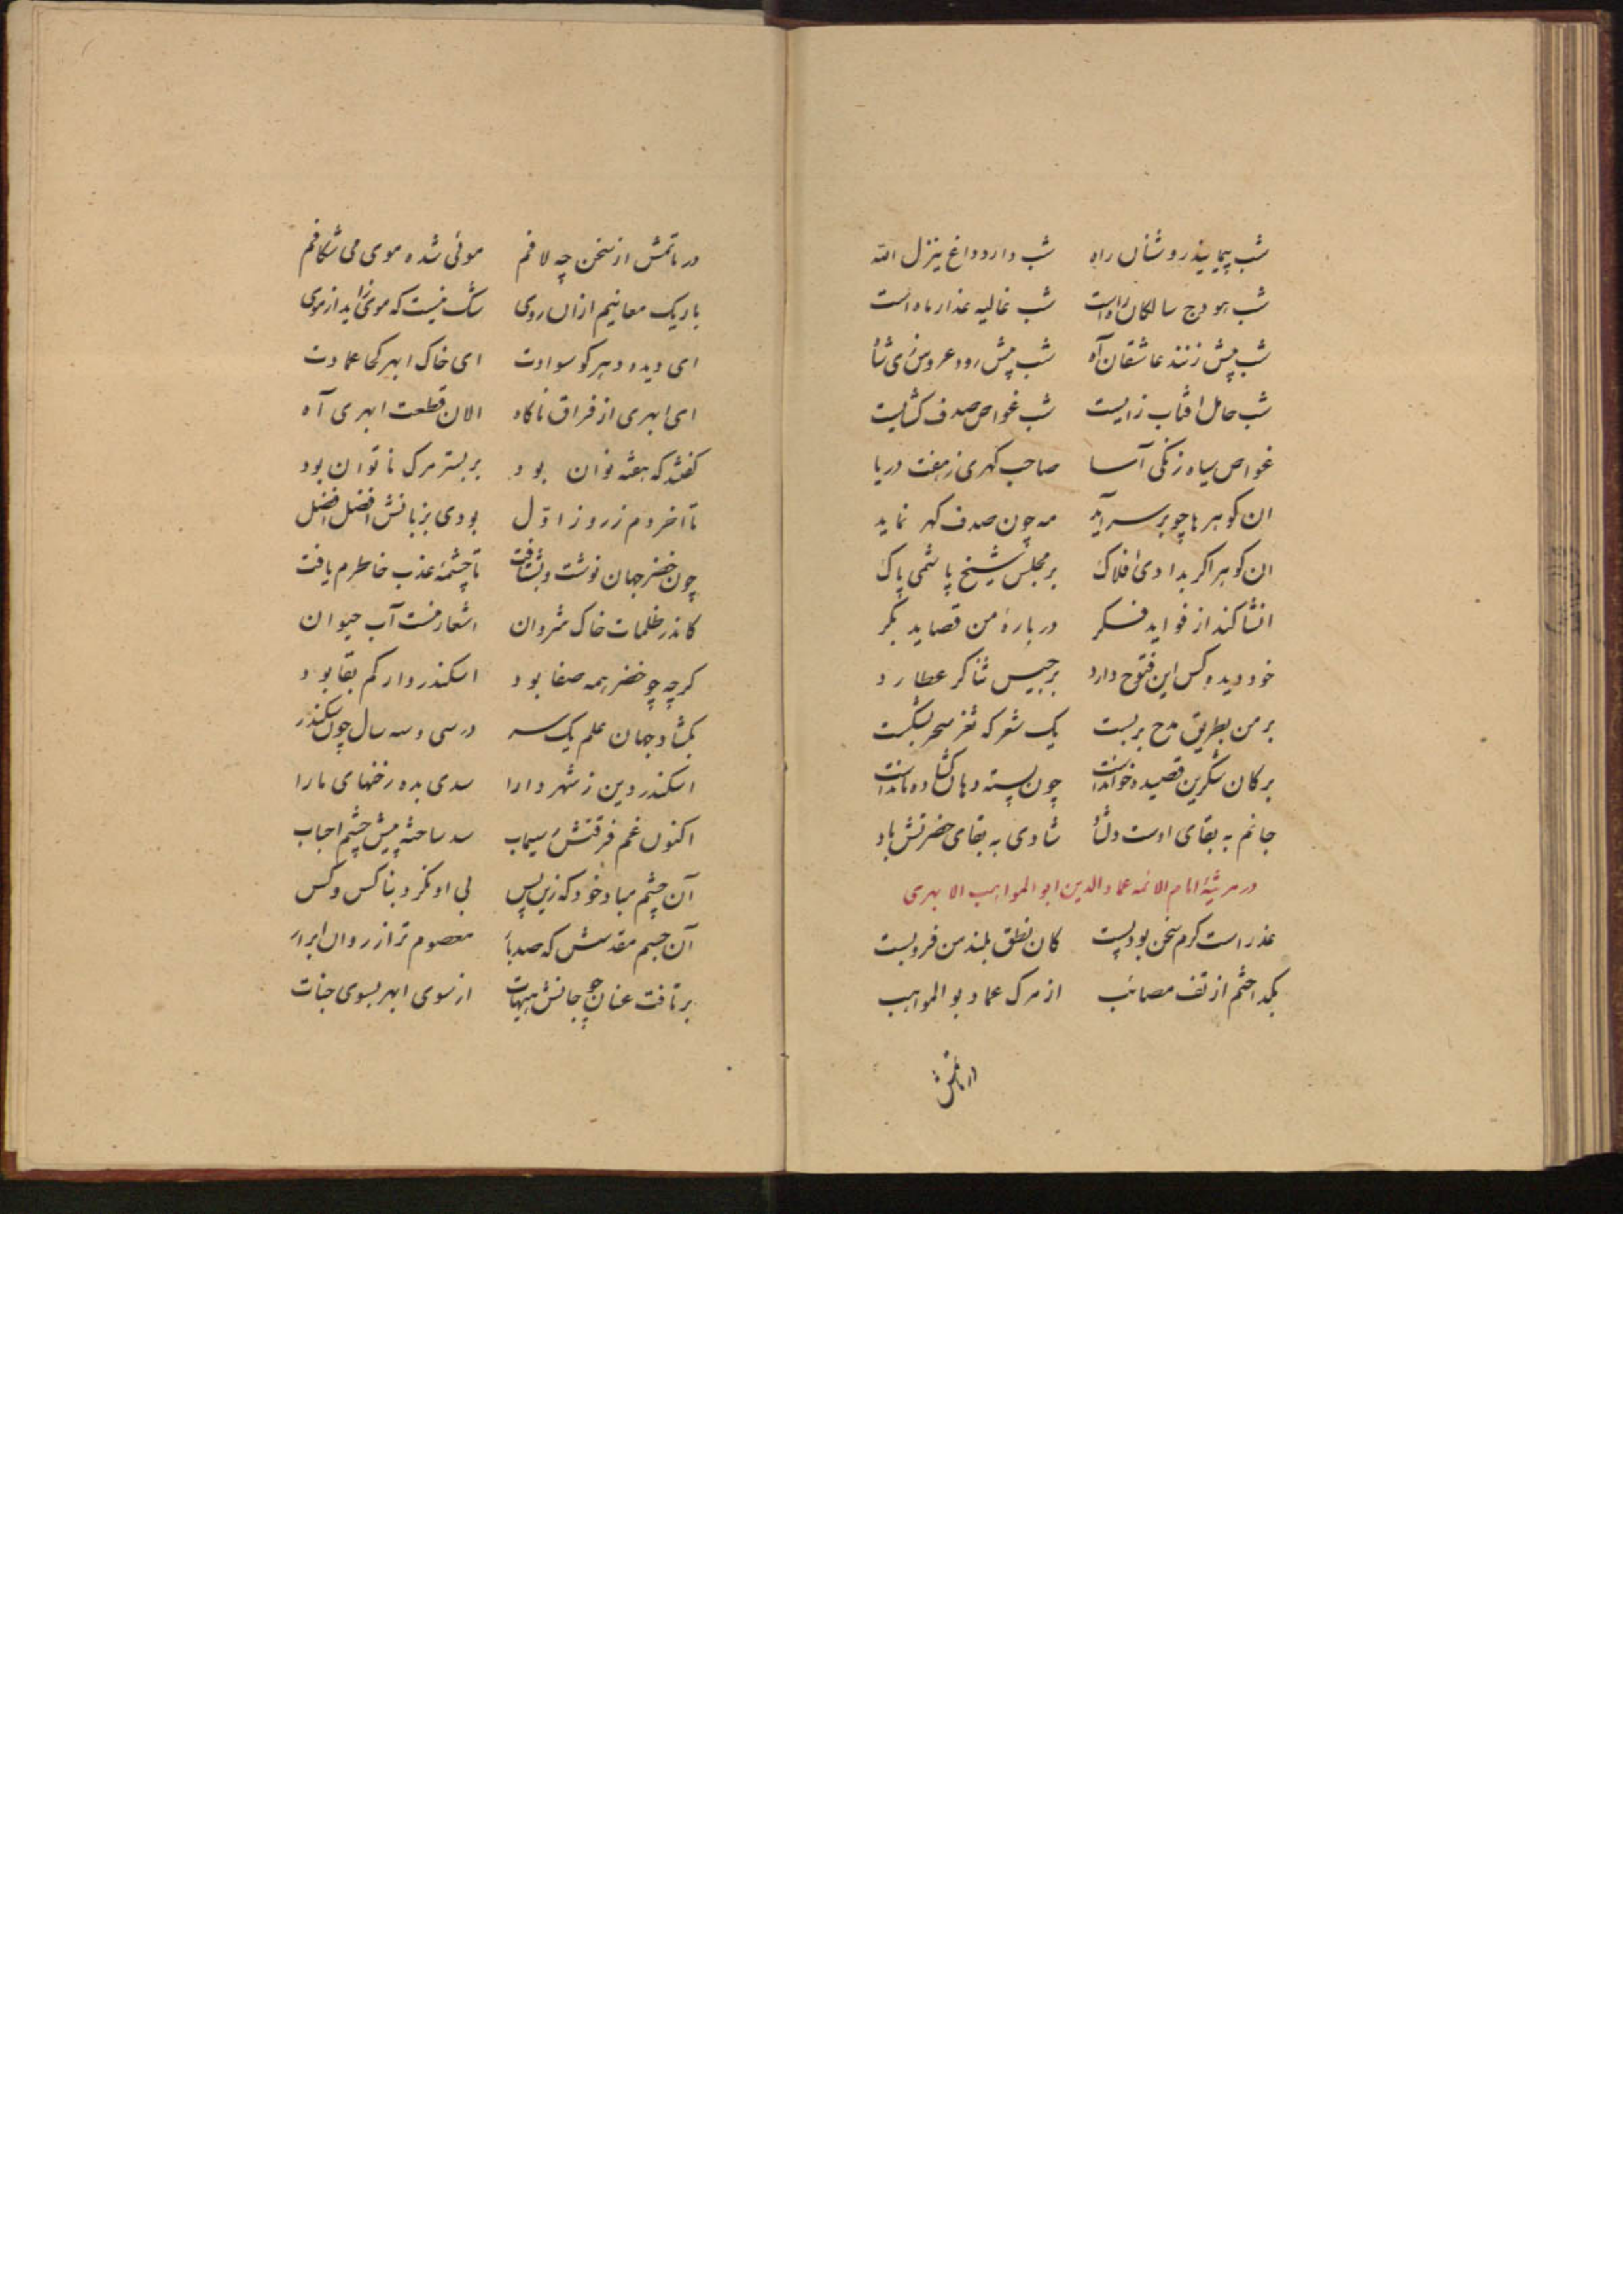 شب پیماید روشنان راه شب دارد داغ ینزل الله
شب هودج سالکان راهست شب غالیه عذار ماه است
شب پیش زنند عاشقان آه شب پیش رود عروس زی شاه
شب حامل افتاب زایست شب غواص صدف کشایست
غواص سیاه زنکی آسا صاحب کهری ز هفت دریا
ان کوهرها چو بر سر آید مه چون صدف کهر نماید
ان کوهر اکر بدادی افلاک بر مجلس شیخ پاشمی پاک
انشا کند از فواید فکر در بارهٔ من قصاید بکر
خود دیده کس این فتوح دارد برجیس ثناکر عطارد
بر من بطریق مدح بربست یک شعر که ثغر سحر بشکست
بر کان شکرین قصیده خواندست چون پسته دهان کشاده ماندست
جانم به بقای اوست دلشاد شادی به بقای حضرتش باد
در مرثیهٔ امام الائمه عماد الدین ابو المواهب الابهری
عذر است کرم سخن بود پست کان نطق بلند من فروبست
بکداختم از تف مصائب از مرک عماد بو المواهب
در ماتمش
در ماتمش از سخن چه لافم موئی شده موی می شکافم
باریک معانیم ازان روی شک نیست که موی زاید از موی
ای دیده دهر کو سوادت ای خاک ابهر کجا عمادت
ای ابهری از فراق ناکاه الان قطعت ابهری آه
کفتند که هفته نوان بود بر بستر مرک ناتوان بود
تا اخر دم ز روز اوّل بودی بزبانش افضل افضل
چون خضر جهان نوشت و بشتافت تا چشمهٔ عذب خاطرم یافت
کاندر ظلمات خاک شروان اشعار منست آب حیوان
کرچه چو خضر همه صفا بود اسکندروار کم بقا بود
بکشاد جهان علم یک سر در سی و سه سال چون سکندر
اسکندر دین ز شهر دارا سدی بده رخنهای ما را
اکنون غم فرقتش سیماب سد ساخته پیش چشم احباب
آن چشم مباد خود که زین پس بی او نکرد بناکس و کس
آن جسم مقدسش که صدبار معصوم تر از روان ابرار
برتافت عنان چو جانش هیهات از سوی ابهر بسوی جنات